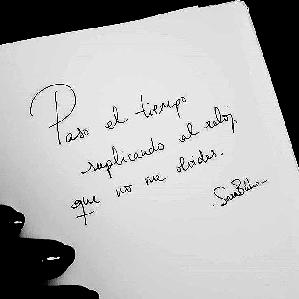 Paso el tiempo
suplicando al reloj,
que no me olvides.